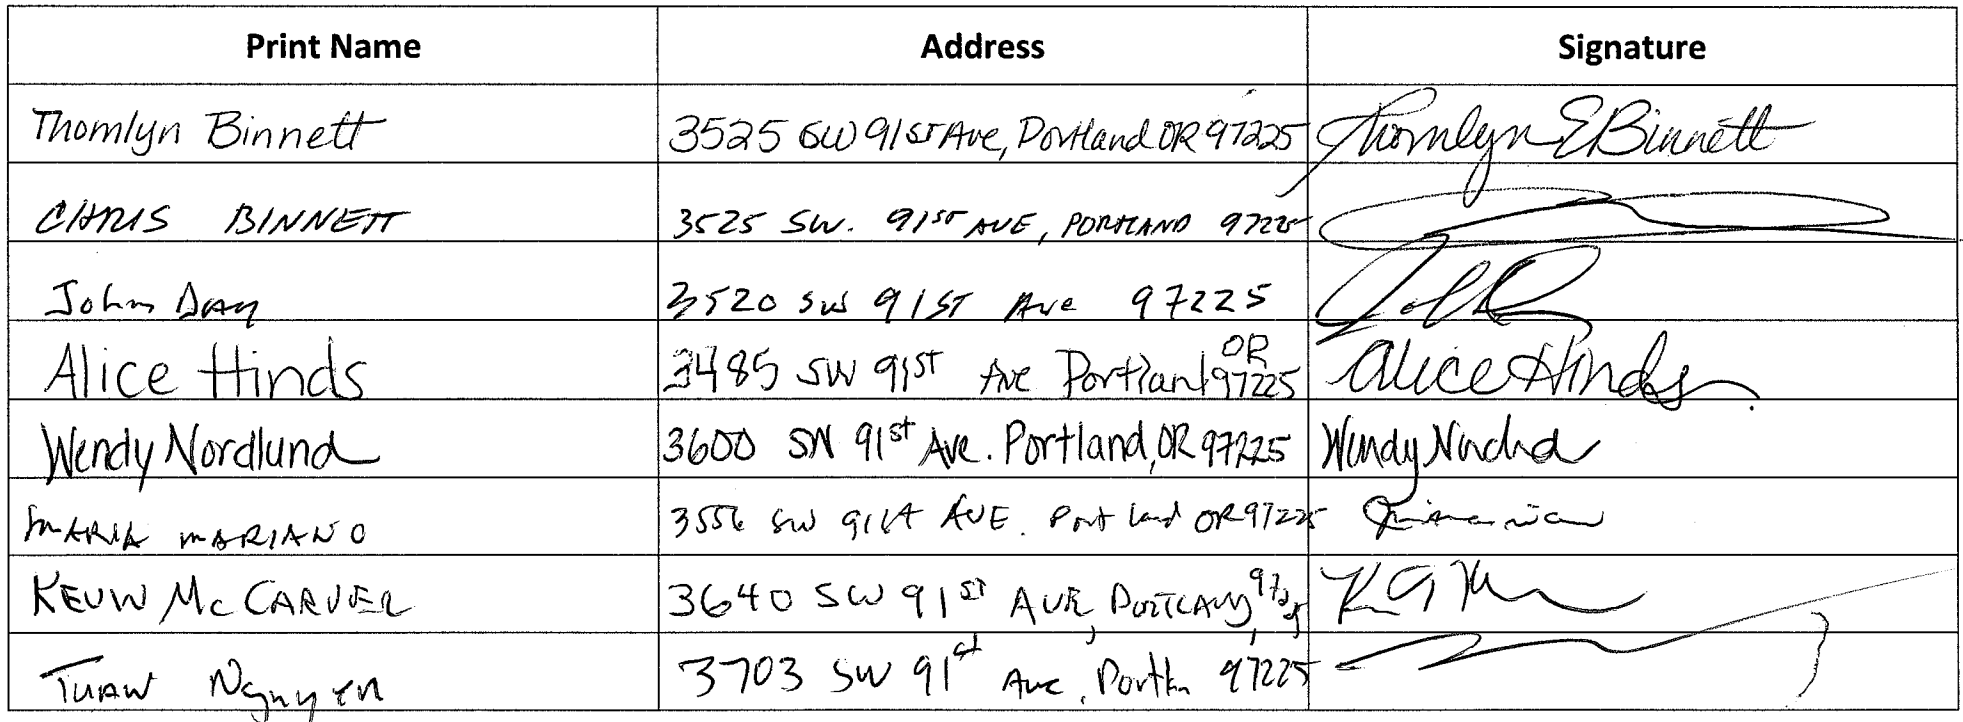 Print Name Address Signature
Thomlyn Binnett 3525 SW 91ST Ave, Portland OR 97225 Thomlyn E Binnett
CHRIS BINNETT 3525 SW. 91ST AVE, PORTLAND 97225
John Day 3520 SW 91ST Ave 97225
Alice Hinds 3485 SW 91ST Ave Portland OR 97225 Alice Hinds
Wendy Nordlund 3600 SW 91st Ave. Portland, OR 97225 Wendy
MARIA MARIANO 3556 SW 91st AVE. Portland OR 97225
KEVIN McCARVER 3640 SW 91ST AVE, PORTLAND, 97225
TUAN Nguyen 3703 SW 91st Ave, 97225